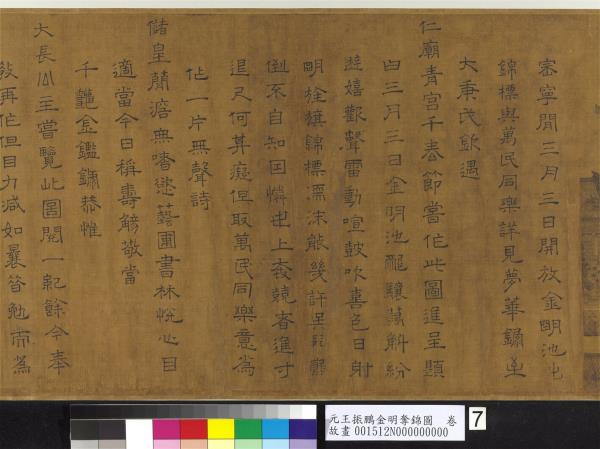 崇寧間三月三日開放金明池出
錦標與萬民同樂詳見夢華錄至
大庚戌欽遇
仁廟青宮千春節嘗作此圖進呈題
曰三月三日金明池龍驤萬斛紛
遊嬉歡聲雷動喧鼓吹喜色日射
明旌旗錦標濡沫能幾許吳兒顛
倒不自知因憐世上奔競者進寸
退尺何其癡但取萬民同樂意為
作一片無聲詩
儲皇簡澹無嗜慾藝圃書林悅心目
適當今日稱壽觴敬當
千龜金鑑錄恭惟
大長公主嘗覽此圖閱一紀餘今奉
教再作但目力減如曩昔勉而為
元王振鵬金明奪錦圖 卷
故畫 001512N000000000
7